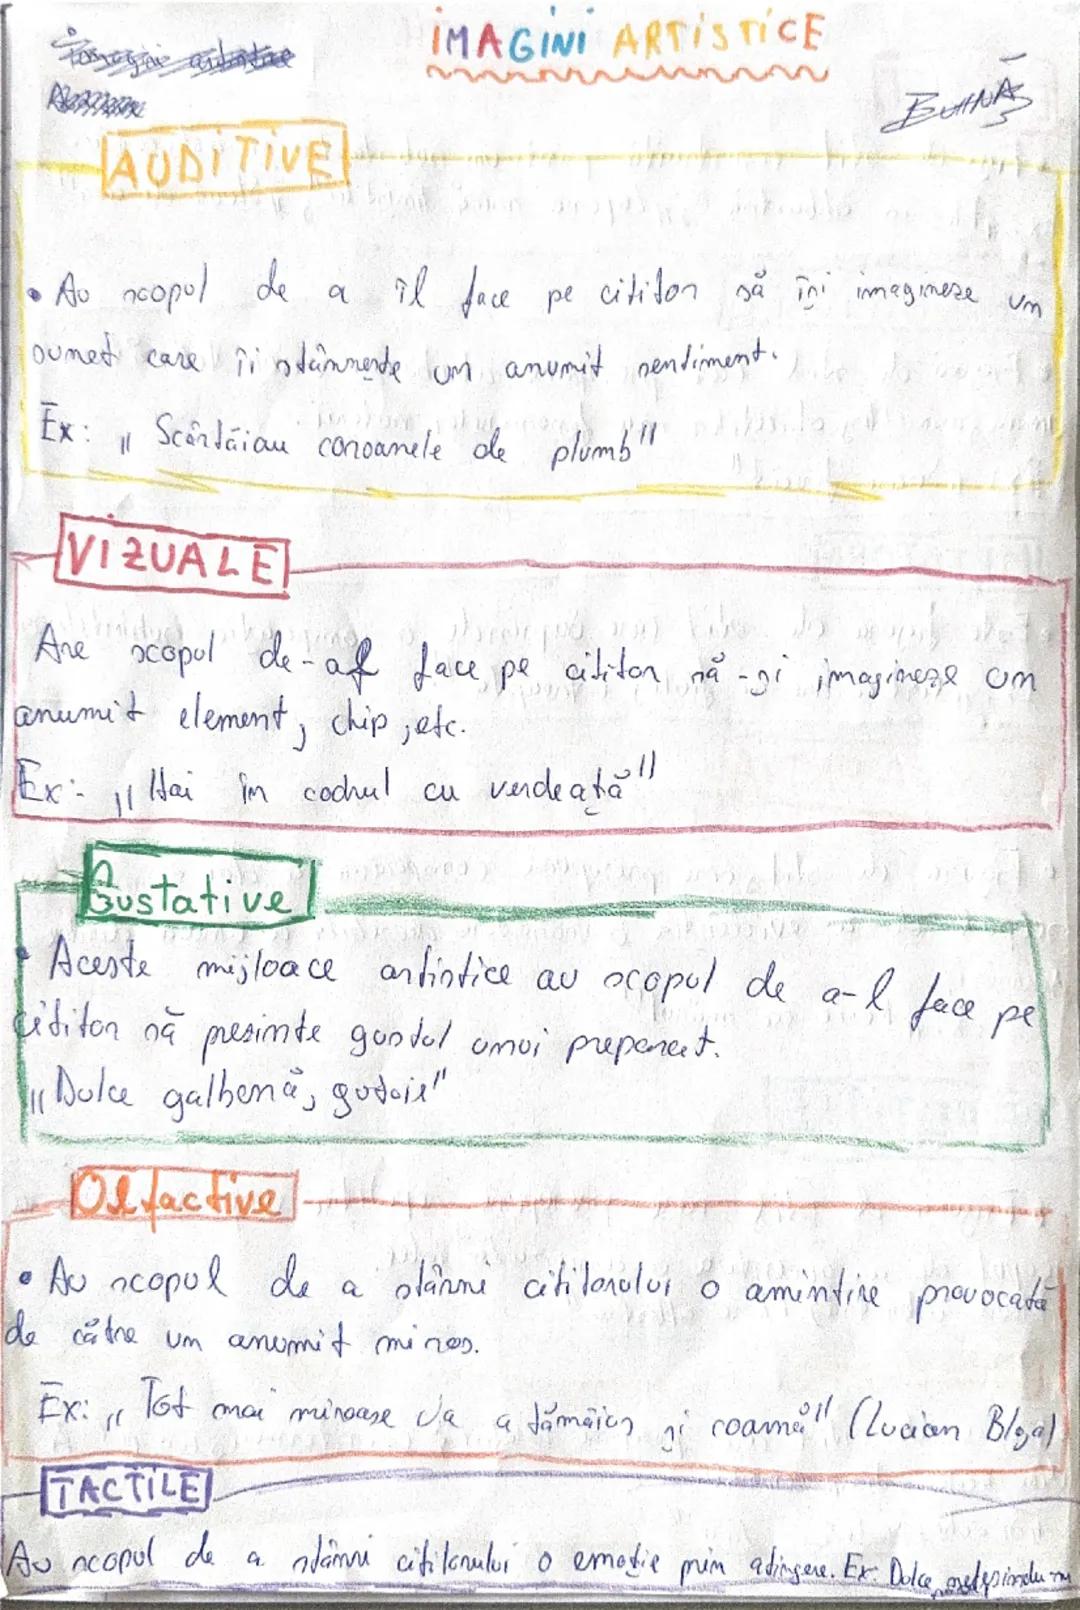 IMAGINI ARTISTICE
AUDITIVE
• Au scopul de a îl face pe cititor să își imagineze un
sunet care îi stârnește un anumit sentiment.
Ex: „Scârțâiau coroanele de plumb"
VIZUALE
Are scopul de-al face pe cititor să-și imagineze un
anumit element, chip, etc.
Ex: „Hai în codrul cu verdeață"
Gustative
• Aceste mijloace artistice au scopul de a-l face pe
cititor să presimte gustul unui preparat.
„Dulce galbenă, gutuie"
Olfactive
• Au scopul de a stârni cititorului o amintire provocată
de către un anumit miros.
Ex: „Tot mai miroase via a tămâios și coarnă" (Lucian Blaga)
TACTILE
Au scopul de a stârni cititorului o emoție prin atingere. Ex: Dulce